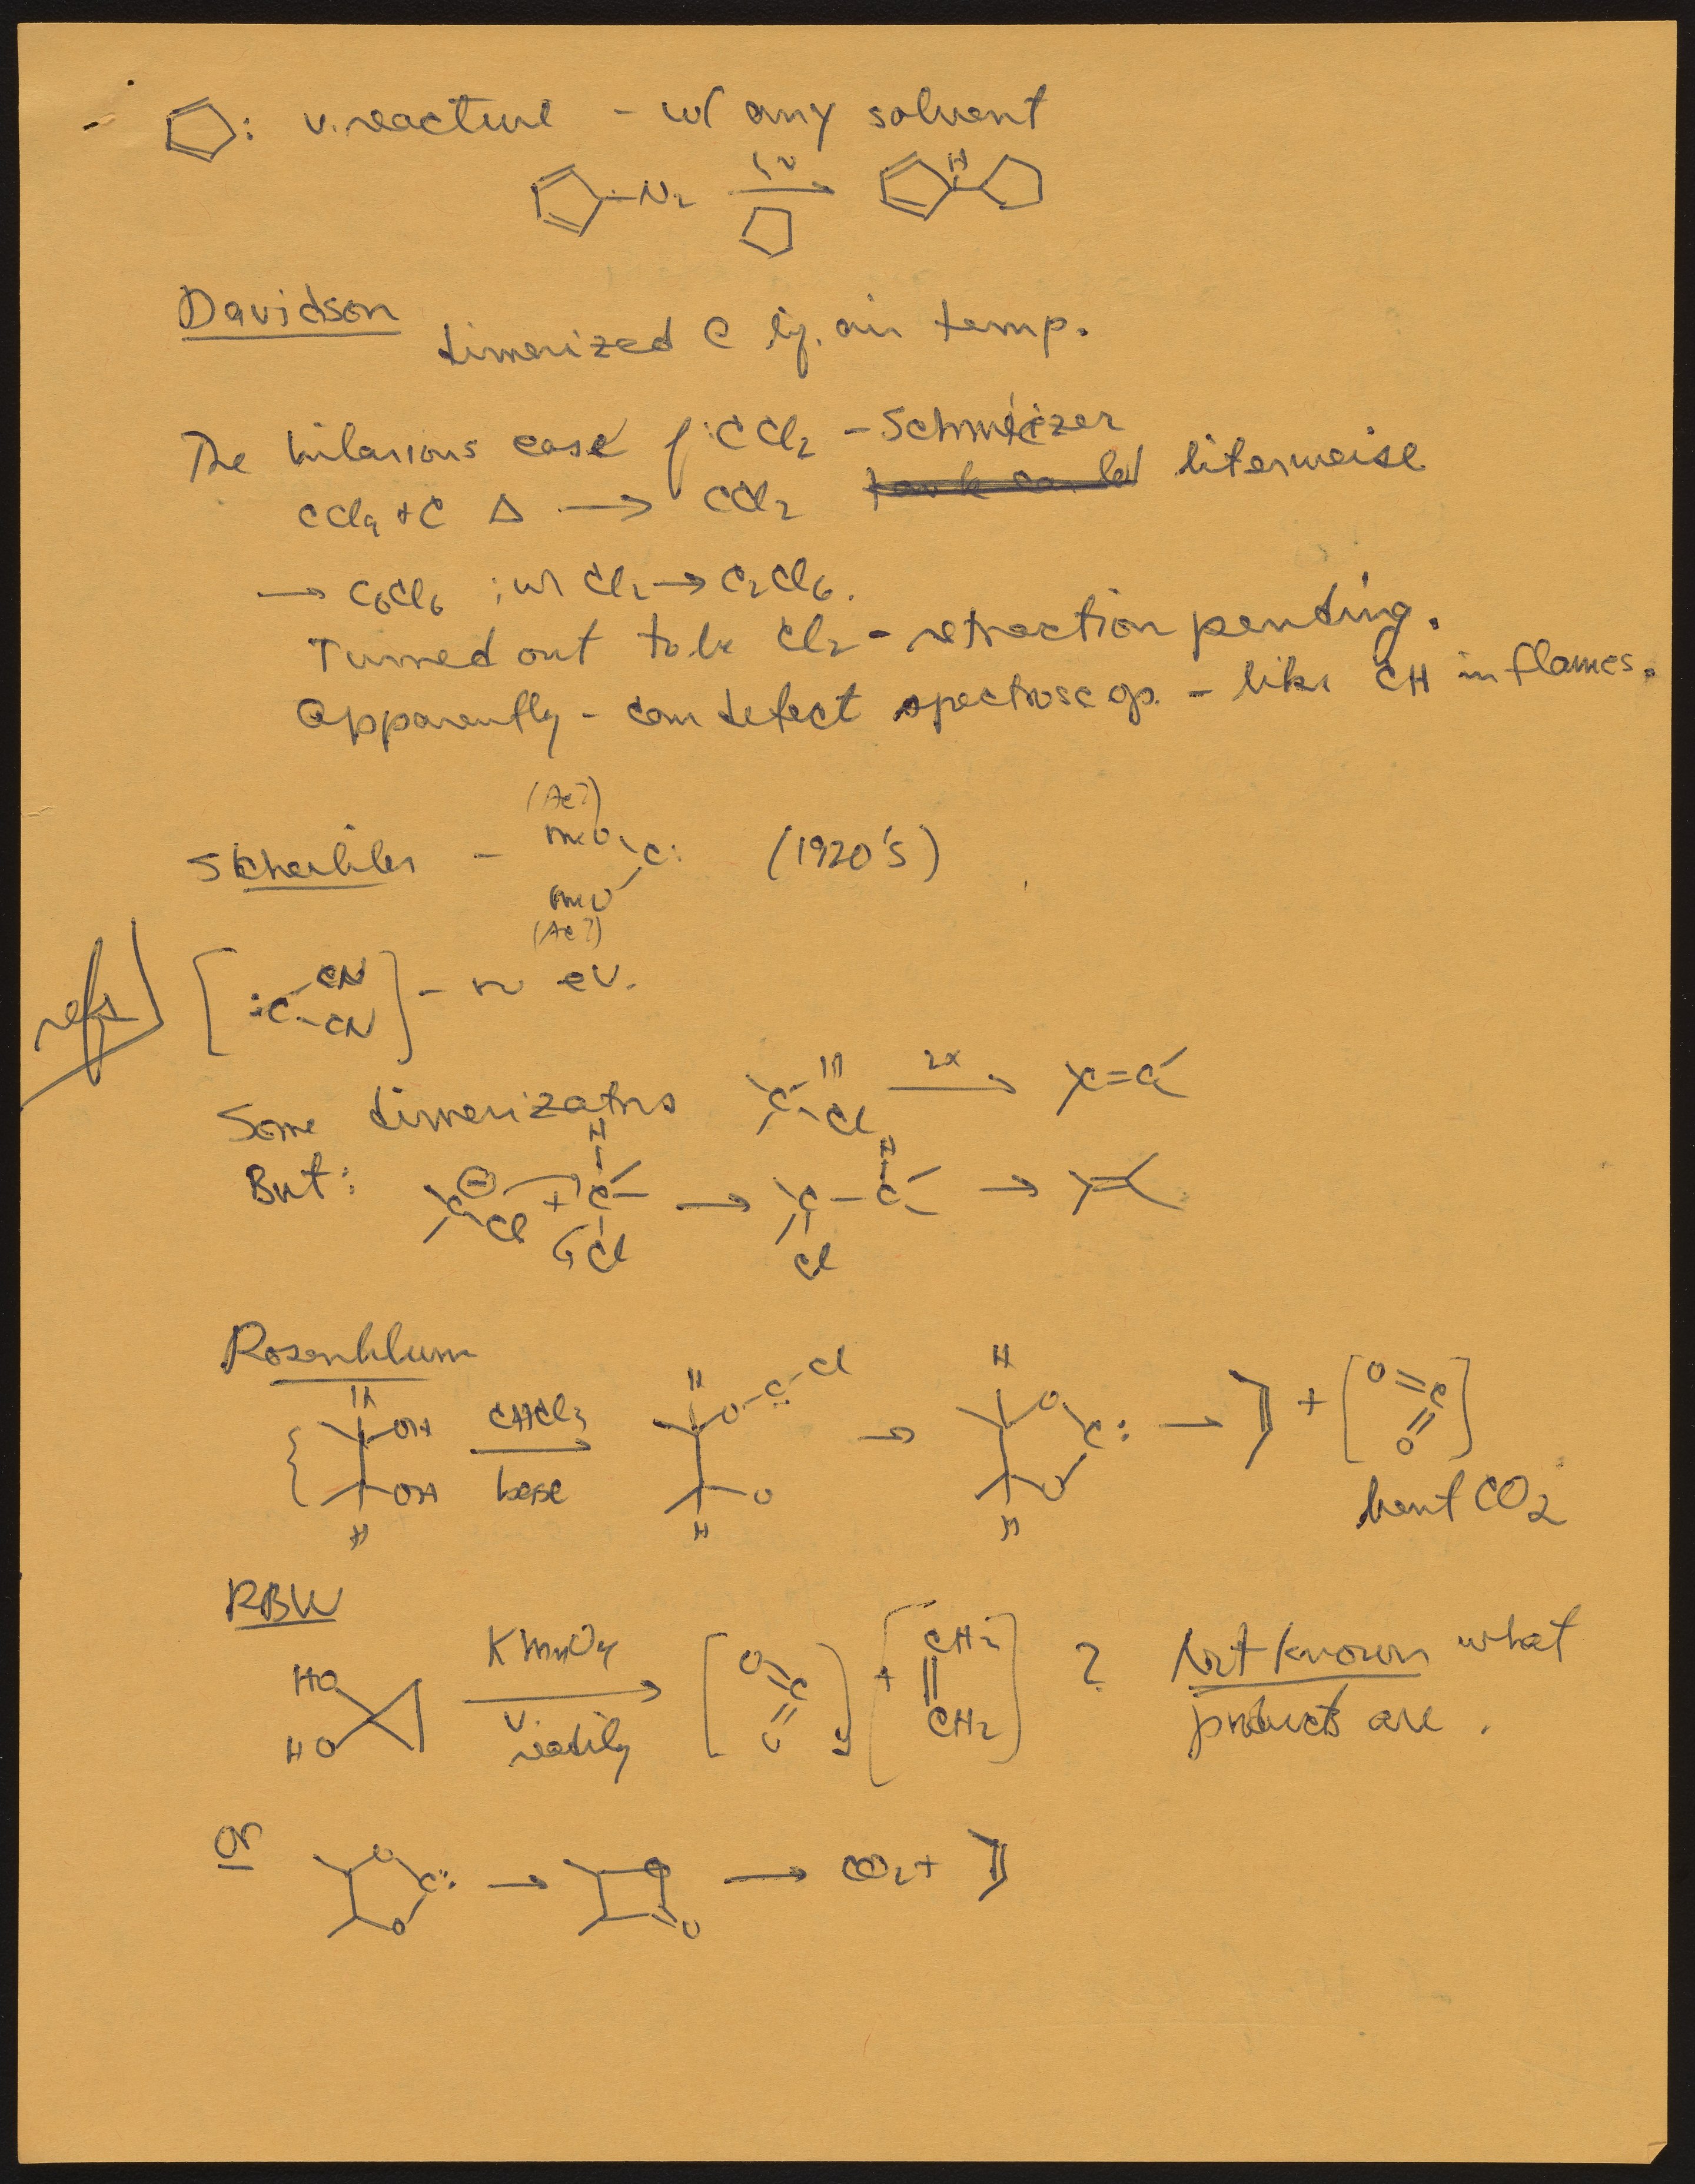 : v. reactive - w/ any solvent
N₂ hν H
Davidson
dimerized @ liq. air temp.
The hilarious case of :CCl₂ - Schmeizer
CCl₄ + C Δ → CCl₂ literweise
→ C₆Cl₆ ; w/ Cl₂ → C₂Cl₆.
Turned out to be Cl₂ - retraction pending.
Apparently - can detect spectroscop. - like CH in flames.
(Ac?)
MeO
C: (1920's)
MeO
(Ac?)
refs [:C CN CN] - no ev.
Some dimerizatns C H Cl 2x → C=C
But: C ⊖ Cl + H C Cl → C Cl - C H →
Rosenblum
H OH OH H CHCl₃ base → H O-C̈-Cl O H → H O C: O H → + [O=C=O]
bent CO₂
RBW
HO HO KMnO₄ v. readily → [O=C=O] + [CH₂=CH₂] ? Not known what
products are.
or O C: O → O O → CO₂ +